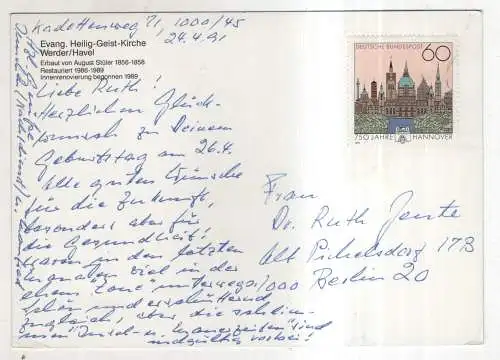 Kadettenweg 71, 1000/45
24.4.91
Evang. Heilig-Geist-Kirche
Werder/Havel
Erbaut von August Stüler 1856-1858
Restauriert 1986-1989
Innenrenovierung begonnen 1989
Liebe Ruth!
Herzlichen Glück-
wunsch zu Deinem
Geburtstag am 26.4.
Alle guten Wünsche
für die Zukunft,
besonders aber für
die Gesundheit!
Waren in den letzten
Monaten viel in der
ehem. "Zone" unterwegs,
schön und erschütternd
zugleich, aber die schlim-
men Insel-u. Mauerzeiten sind
endgültig vorbei!
DEUTSCHE BUNDESPOST
60
750 JAHRE HANNOVER
Frau
Dr. Ruth
Alt Pichelsdorf 17B
1000 Berlin 20